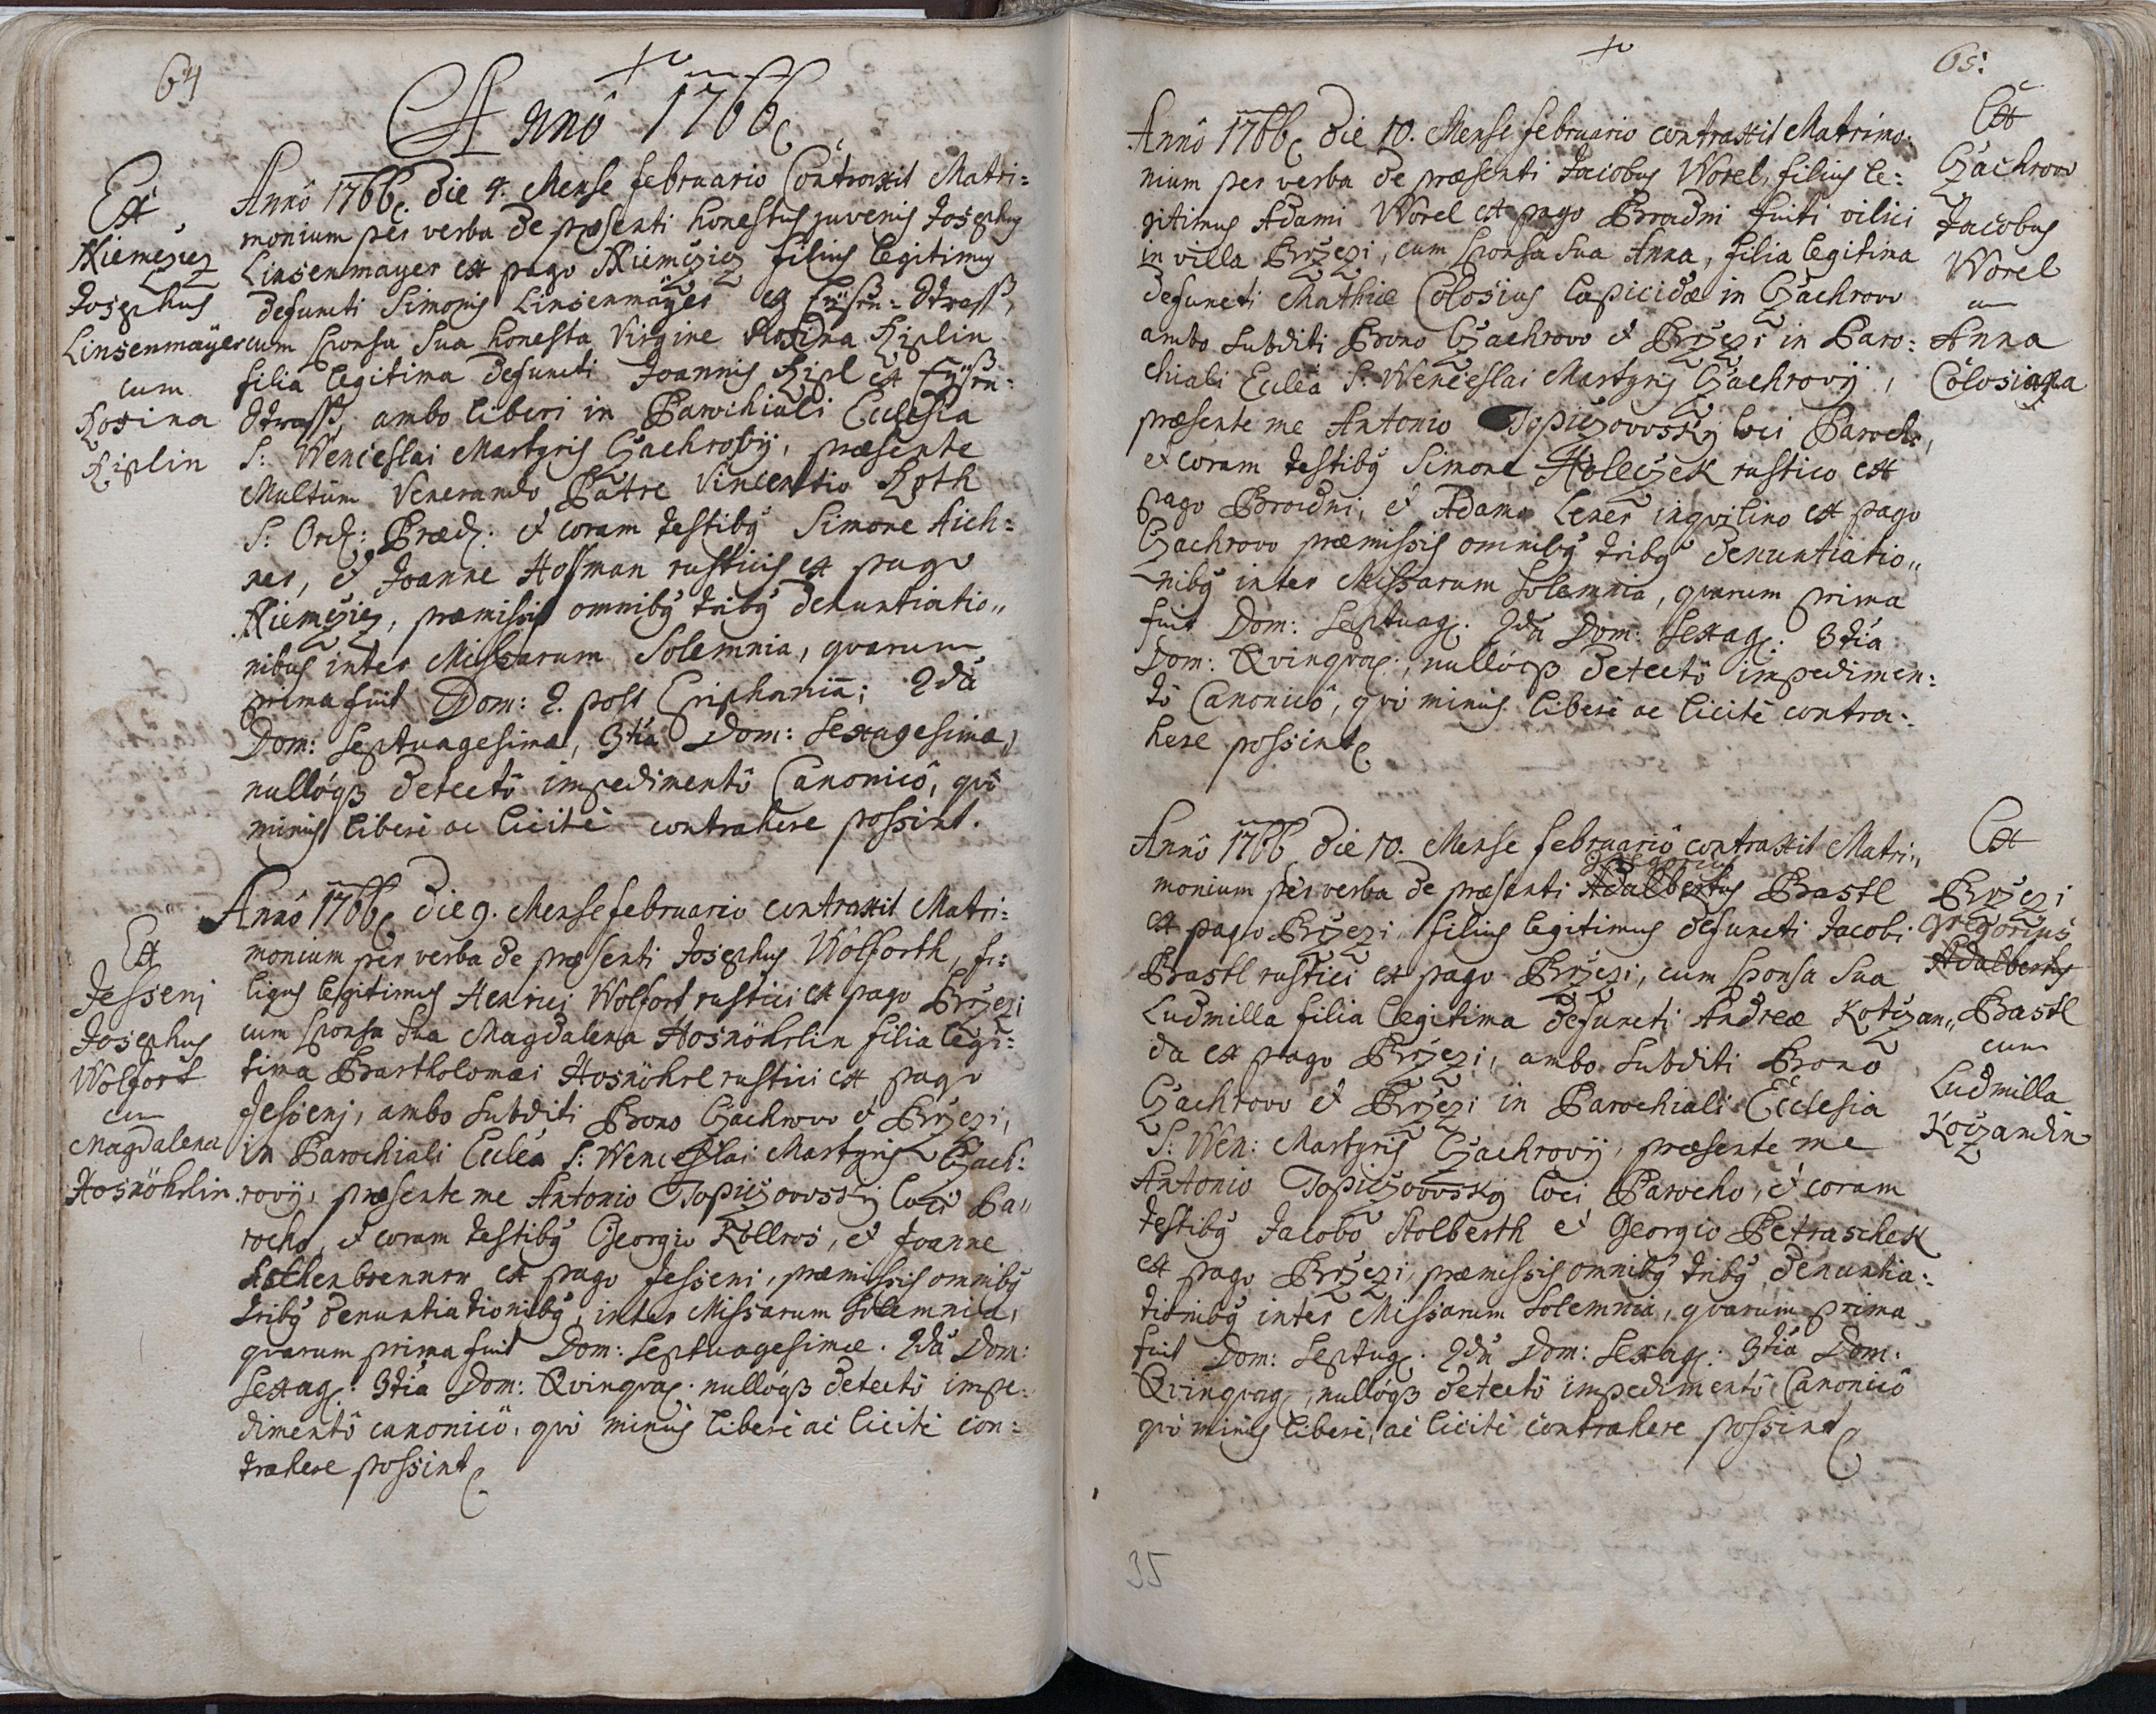 64
Anno 1766
Ex
Niemczicz
Josephus
Linsenmäyer
cum
Rosina
Riplin
Anno 1766. die 4. Mense februario Contraxit Matri=
monium per verba de præsenti honestus juvenis Josephus
Linsenmayer ex pago Niemczicz filius legitimus
defuncti Simonis Linsenmäyer ex Eysen=Strass,
cum sponsa sua honesta Virgine Rosina Riplin
filia legitima defuncti Joannis Ripl ex Eysen=
Strass, ambo liberi in Parochiali Ecclesia
S: Wenceslai Martyris Czachrovij, præsente
Multùm Venerando Patre Vincentio Roth
S: Ord: Præd: et coram testibus Simone Aich=
ner, et Joanne Hoffman rusticis ex pago
Niemczicz, præmissis omnibus tribus denuntiatio„
nibus inter Missarum Solemnia, quarum
prima fuit Dom: 2. post Epiphaniã; 2dà
Dom: Septuagesimæ, 3tià Dom: Sexagesimæ,
nullóqз detectô impedimentô Canonicô, quô
minùs liberè ac licitè contrahere possint.
Ex
Jessenj
Josephus
Wolfort
cum
Magdalena
Hosnöhrlin
Anno 1766 die 9. Mense februario contraxit Matri=
monium per verba de præsenti Josephus Wolforth, fi=
lius legitimus Henrici Wolfort rustici ex pago Brzezi
cum sponsa sua Magdalena Hosnöhrlin filia legi=
tima Bartholomæi Hosnöhrl rustici ex pago
Jessenj, ambo subditi Bono Czachrow et Brzezi,
in Parochiali Ecclêa S: Wenceslai Martyris Czach=
rovij, præsente me Antonio Topiczovvský loci Pa„
rocho, et coram testibus Georgio Kollros, et Joanne
Aschenbrenner ex pago Jesseni, præmissis omnibus
tribus denuntiationibus, inter Missarum Solemnia,
quarum prima fuit Dom: Septuagesimæ. 2dà Dom:
Sexag: 3tià Dom: Qvinquag. nullóqз detectô impe=
dimentô canonicô, quô minùs liberè ac licitè con=
trahere possint
65.
Anno 1766 die 10. Mense februario contraxit Matrimo=
nium per verba de præsenti Jacobus Worel, filius le=
gitimus Adami Worel ex pago Broudni fuiti vilici
in villa Brzezi, cum sponsa sua Anna, filia legitima
defuncti Mathiæ Colosius lapicidæ in Czachrow
ambo subditi Bono Czachrow et Brzezi in Paro=
chiali Ecclêa S: Wenceslai Martyris Czachrovij,
præsente me Antonio Topiczovvský loci Parocho,
et coram testibus Simone Holeczek rustico ex
pago Broudni, et Adamo Lener inqvilino ex pago
Czachrow præmissis omnibus tribus denuntiatio„
nibus inter Missarum Solemnia, quarum prima
fuit Dom: Septuag. 2dà Dom: Sexag: 3tià
Dom: Qvinquag:, nullóqз detectô impedimen=
tô Canonicô, quô minùs liberè ac licitè contra=
here possint
Ex
Czachrow
Jacobus
Worel
cum
Anna
Colosiana
Anno 1766 die 10. Mense februario contraxit Matri„
gregorius
monium per verba de præsenti Adalbertus Bastl
ex pago Brzezi filius legitimus defuncti Jacobi
Bastl rustici ex pago Brzezi, cum sponsa sua
Ludmilla filia legitima defuncti Andreæ Kotczan„
da ex pago Brzezi, ambo subditi Bono
Czachrow et Brzezi in Parochiali Ecclesia
S: Wen: Martyris Czachrovij, præsente me
Antonio Topiczovvský loci Parocho, et coram
testibus Jacobo Holberth et Georgio Petraschek
ex pago Brzezi, præmissis omnibus tribus denuntia=
tionibus inter Missarum Solemnia, quarum prima
fuit Dom: Septug. 2dà Dom: Sexag: 3tià Dom:
Qvinquag, nullóqз detectô impedimentô Canonicô
quô minùs liberè, ac licitè contrahere possint
Ex
Brzezi
gregorius
Adalbertus
Bastl
cum
Ludmilla
Koczandin
35